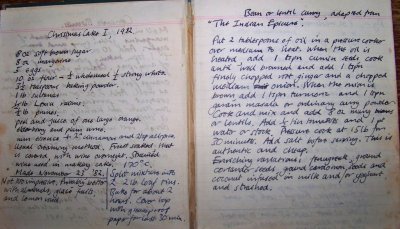 Christmas Cake I, 1982
8 oz soft brown sugar
8 oz margarine
5 eggs
10 oz flour
1½ teaspoons baking powder.
1 lb sultanas
½ lb raisins
½ lb prunes
peel and juice of one large orange.
Usual creaming method. Fruit soaked
is covered, with wine overnight. Strained
wine used in making cake. 170°C.
* Made November 23rd '82
Not too impressive,
with almonds, glacé fruits
and lemon rind.
Split mixture into
2 2 lb loaf tins.
Bake for about 2
hours. Cover top
with greaseproof
paper for last 30 min.
Bean or lentil curry, adapted from
"The Indian Epicure".
Put 2 tablespoons of oil in a pressure cooker
over medium to heat. When the oil is
heated, add 1 tspn cumin seeds, cook
until well browned and add 1 tspn
finely chopped root ginger and a chopped
medium onion. When the onion is
brown add 1 tspn turmeric and 1 tspn
garam masala or ordinary curry powder.
Cook and mix and add 8 oz mung beans
or lentils. Add ½ tin tomatoes and
water or stock. Pressure cook at 15 lb for
30 minutes. Add salt before serving. This is
authentic and cheap.
Enriching variations: fenugreek, ground
coriander seeds, ground cardamom seeds and
coconut infused in milk and/or yoghurt
and strained.